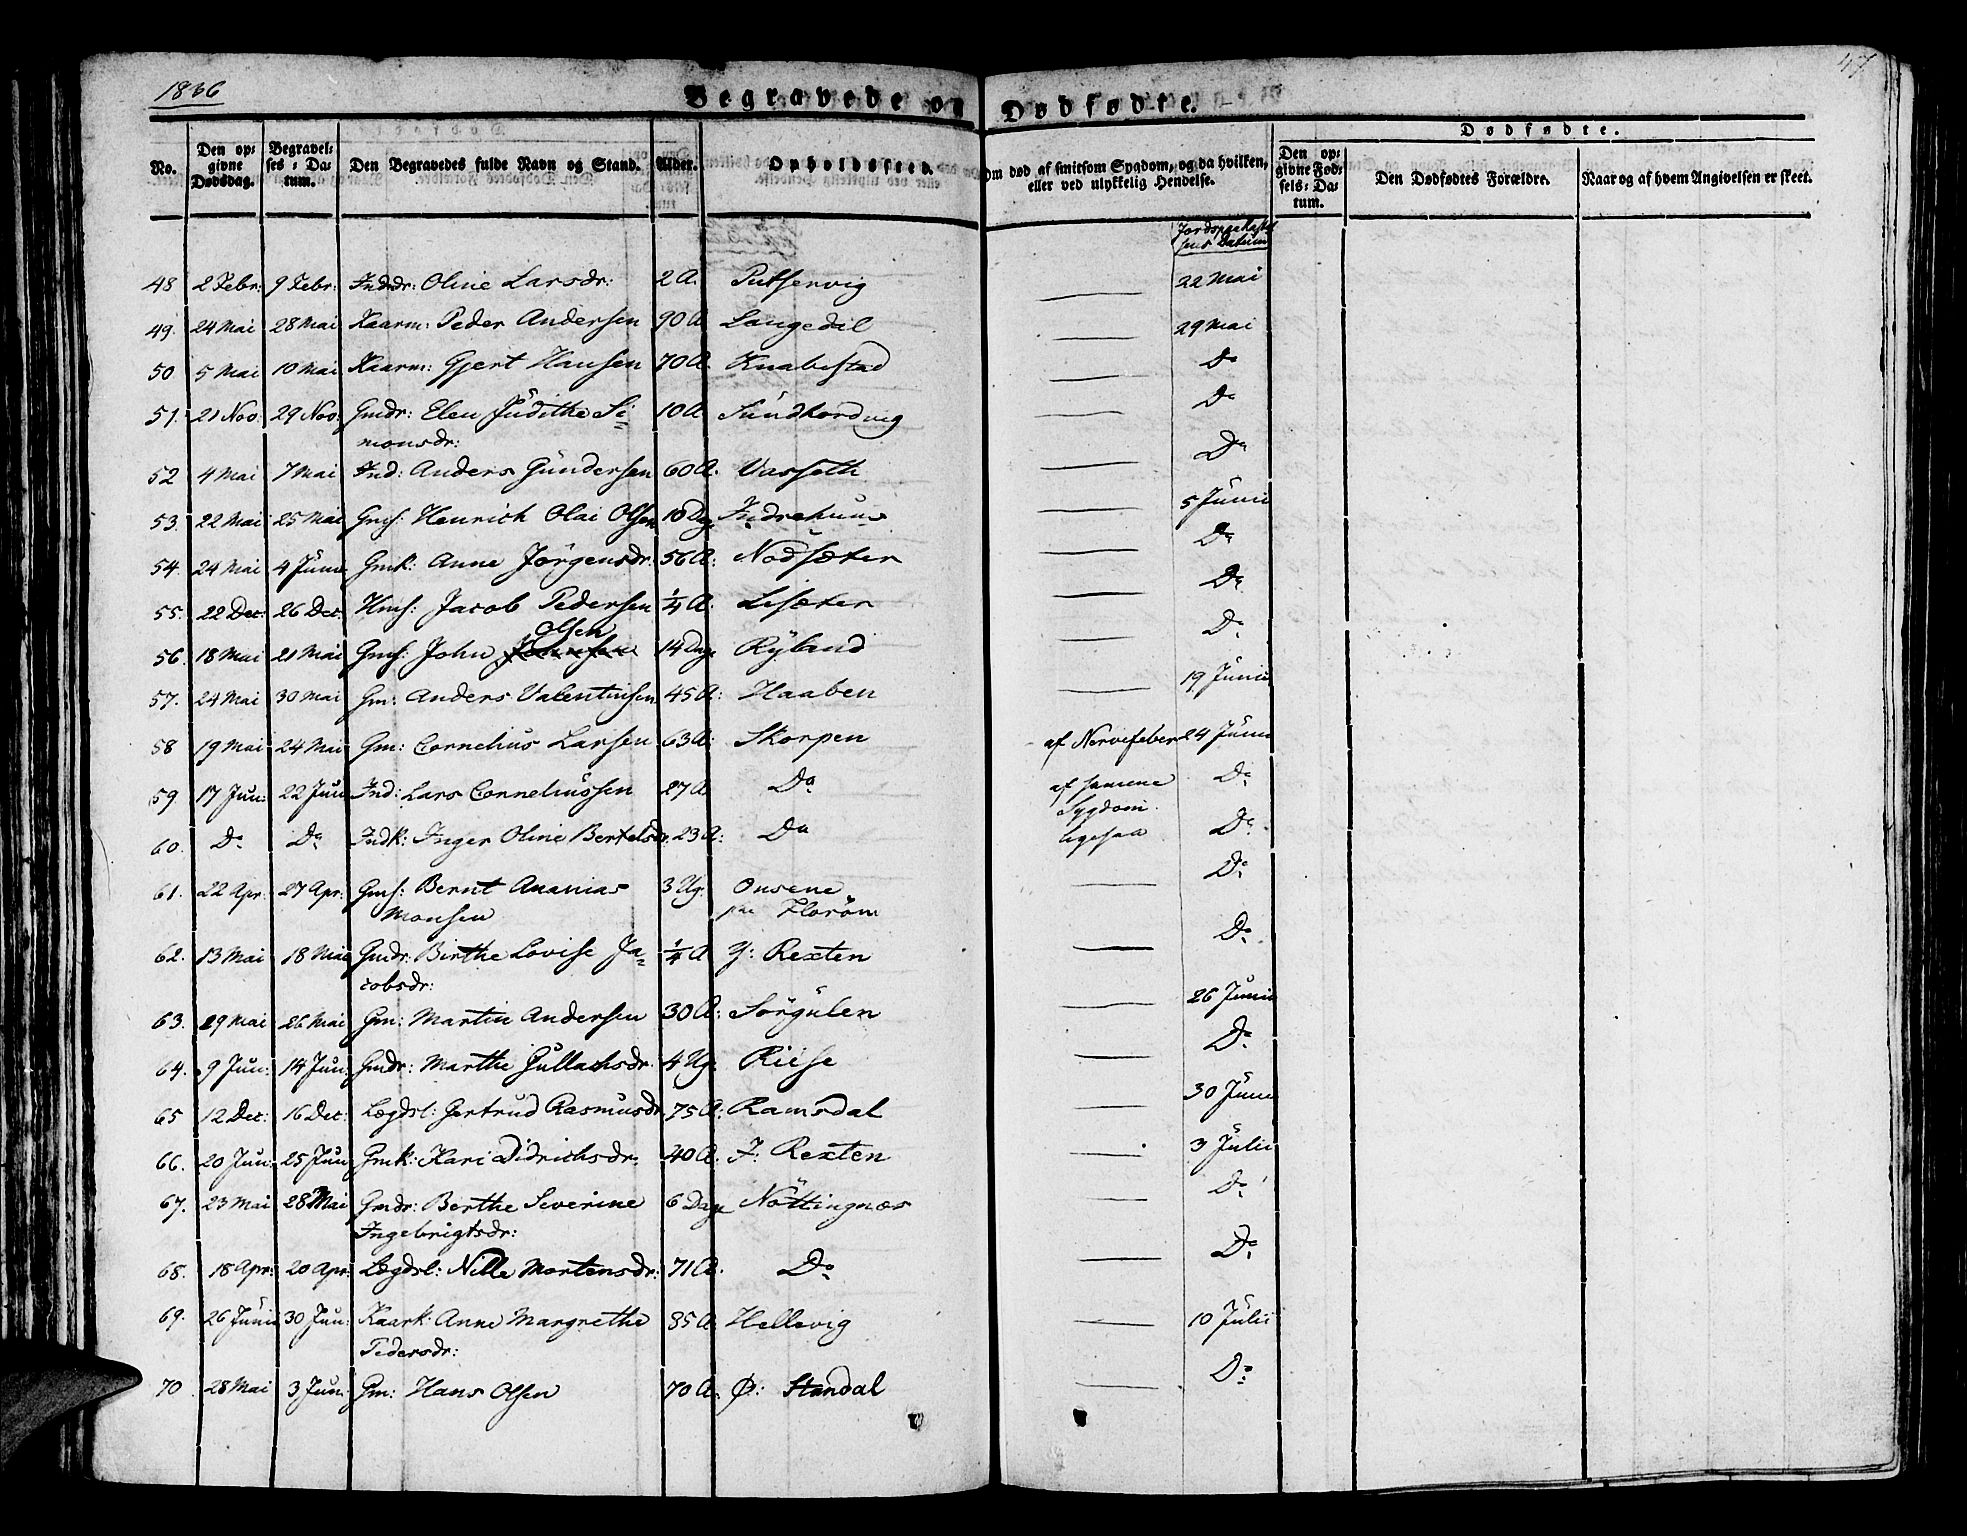 1836 Begravede og Dødfødte. 47.
Dødfødte.
No. Den op= givne Dødsdag. Begravel= ses = Da= tum. Den Begravedes fulde Navn og Stand. Alder. Opholdssted. Om død af smitsom Sygdom, og da hvilken, eller ved ulykkelig Hendelse. Den op= givne Fød= sels= Da= tum. Den Dødfødtes Forældre. Naar og af hvem Angivelsen er skeet.
Jordspaakastel sens Datum
48 2 Febr: 9 Febr: Inddr: Oline Larsdr: 2 A. Putservig 22 Mai
49. 24 Mai 28 Mai Kaarm: Peder Andersen 90 A. Langedil 29 Mai
50 5 Mai 10 Mai Kaarm: Gjert Hansen 70 A. Knabestad Do
51. 21 Nov. 29 Nov: Gmdr: Elen Judithe Si= 10 A. Sundhordvig Do
monsdr:
52 4 Mai 7 Mai Ind: Anders Gundersen 60 A. Vasseth Do
53. 22 Mai 25 Mai Gms: Henrich Olai Olsen 10 Dag Indrehuus 5 Junii
54. 24 Mai 4 Junii Gmk: Anne Jörgensdr. 56 A: Nodsæter Do
55. 22 Dec: 26 Dec: Hms: Jacob Pedersen 1/4 A. Lisæter Do
Olsen
56. 18 Mai 21 Mai Gms: John Johnsen 14 Dage Ryland Do
57. 24 Mai 30 Mai Gm: Anders Valentinsen 45 A: Haaben 19 Junii
58 19 Mai 24 Mai Gm: Cornelius Larsen 63 A: Skorpen af Nervefeber 24 Junii
59 17 Jun: 22 Jun Ind: Lars Corneliussen 27 A Do af samme Do
Sygdom
60. Do Do Indk: Inger Oline Bertelsdr. 23 A: Do ligesaa Do
61. 22 Apr. 27 Apr. Gms: Bernt Ananias 3 Ug. Onsene Do
Monsen paa Floröm
62. 13 Mai 18 Mai Gmdr: Birthe Lovise Ja= 1/4 A Y: Rexten Do
cobsdr:
63. 19 Mai 26 Mai Gm: Martin Andersen 30 A: Sörgulen 26 Junii
64. 9 Jun: 14 Jun: Gmdr: Marthe Gullachsdr. 4 Ug. Riese Do
65 12 Dec: 16 Dec: Lægdsl: Gertrud Rasmusdr 75 A: Ramsdal 30 Junii
66. 20 Jun: 25 Jun Gmk: Kari Didrichsdr. 40 A. I: Rexten 3 Julii
67. 23 Mai 28 Mai Gmdr: Berthe Severine 6 Dage Nöttingnæs Do
Ingebrigtsdr:
68. 18 Apr: 20 Apr: Lægdsl: Nille Mortensdr: 71 A. Do Do
69. 26 Junii 30 Jun: Kaark: Anne Margrethe 85 A: Hellevig 10 Julii
Pedersdr:
70 28 Mai 3 Jun: Gm: Hans Olsen 70 A. Ø: Standal Do